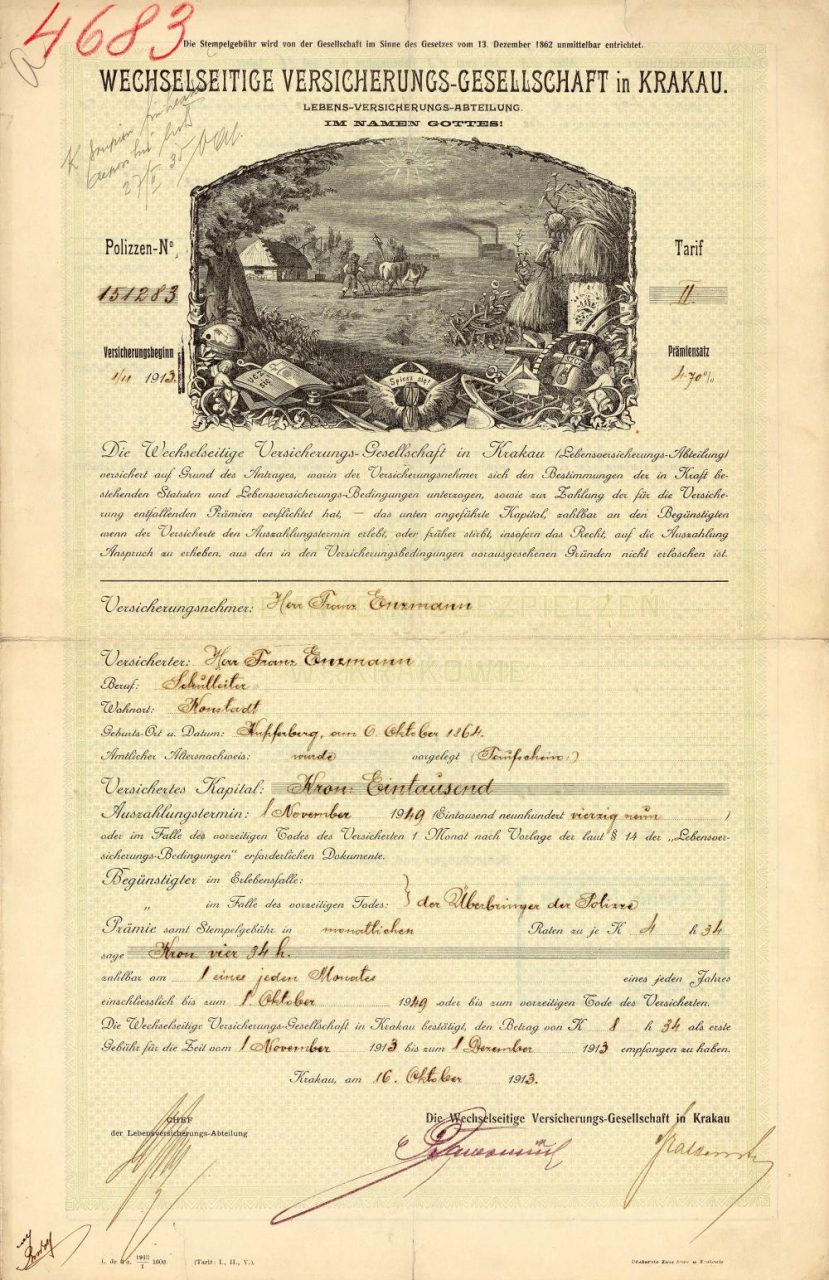 4683
Die Stempelgebühr wird von der Gesellschaft im Sinne des Gesetzes vom 13. Dezember 1862 unmittelbar entrichtet.
WECHSELSEITIGE VERSICHERUNGS-GESELLSCHAFT in KRAKAU.
LEBENS-VERSICHERUNGS-ABTEILUNG.
IM NAMEN GOTTES!
Polizzen-No
151283
Versicherungsbeginn
1/11 1913.
Tarif
II.
Prämiensatz
4·70%
Spiesz się!
Die Wechselseitige Versicherungs-Gesellschaft in Krakau (Lebensversicherungs-Abteilung)
versichert auf Grund des Antrages, worin der Versicherungsnehmer sich den Bestimmungen der in Kraft be-
stehenden Statuten und Lebensversicherungs-Bedingungen unterzogen, sowie zur Zahlung der für die Versiche-
rung entfallenden Prämien verflichtet hat, — das unten angeführte Kapital, zahlbar an den Begünstigten
wenn der Versicherte den Auszahlungstermin erlebt, oder früher stirbt, insofern das Recht, auf die Auszahlung
Anspruch zu erheben, aus den in den Versicherungsbedingungen vorausgesehenen Gründen nicht erloschen ist.
Versicherungsnehmer: Herr Franz Enzmann
Versicherter: Herr Franz Enzmann
W KRAKOWIE
Beruf: Schulleiter
Wohnort: Konstadt
Geburts-Ort u. Datum: Kupferberg, am 6. Oktober 1864.
Amtlicher Altersnachweis: wurde vorgelegt (Taufschein:)
Versichertes Kapital: Kron: Eintausend
Auszahlungstermin: 1 November 1949 (Eintausend neunhundert vierzig neun)
oder im Falle des vorzeitigen Todes des Versicherten 1 Monat nach Vorlage der laut § 14 der „Lebensver-
sicherungs-Bedingungen" erforderlichen Dokumente.
Begünstigter im Erlebensfalle:
„ im Falle des vorzeitigen Todes: } der Überbringer der Polizze
Prämie samt Stempelgebühr in monatlichen Raten zu je K 4 h 34
sage Kron vier 34 h.
zahlbar am 1 eines jeden Monates eines jeden Jahres
einschliesslich bis zum 1 Oktober 1949 oder bis zum vorzeitigen Tode des Versicherten.
Die Wechselseitige Versicherungs-Gesellschaft in Krakau bestätigt, den Betrag von K 8 h 34 als erste
Gebühr für die Zeit vom 1 November 1913 bis zum 1 Dezember 1913 empfangen zu haben.
Krakau, am 16. Oktober 1913.
CHEF
der Lebensversicherungs-Abteilung
Die Wechselseitige Versicherungs-Gesellschaft in Krakau
(Tarif: I., II., V.)